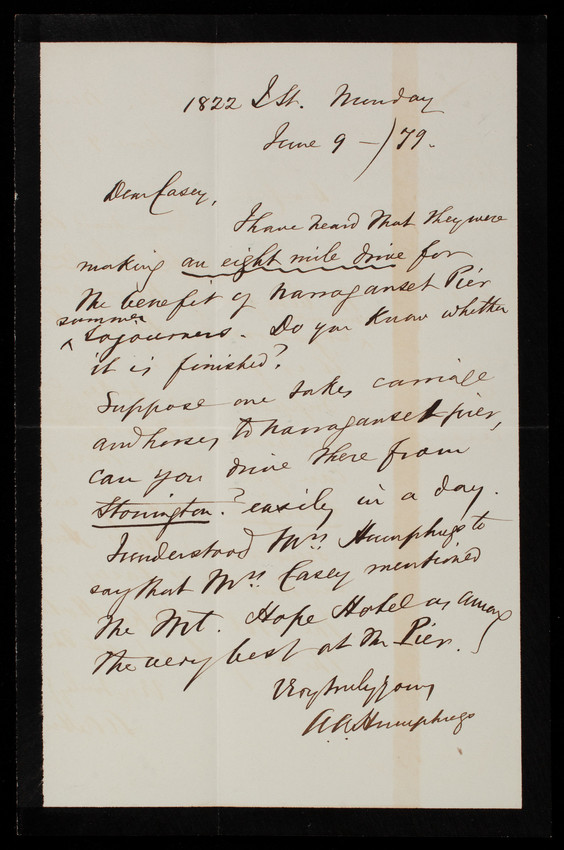 1822 I St. Monday
June 9 - /79.
Dear Casey,
I have heard that they were
making an eight mile drive for
the benefit of Narraganset Pier
summer
^ Sojourners. Do you know whether
it is finished?
Suppose one takes carriage
and horses to Narraganset pier,
can you drive there from
Stonington? easily in a day.
I understood Mrs. Humphreys to
say that Mrs. Casey mentioned
the Mt. Hope Hotel as among
the very best at the Pier.
Very truly yours
A. A. Humphreys